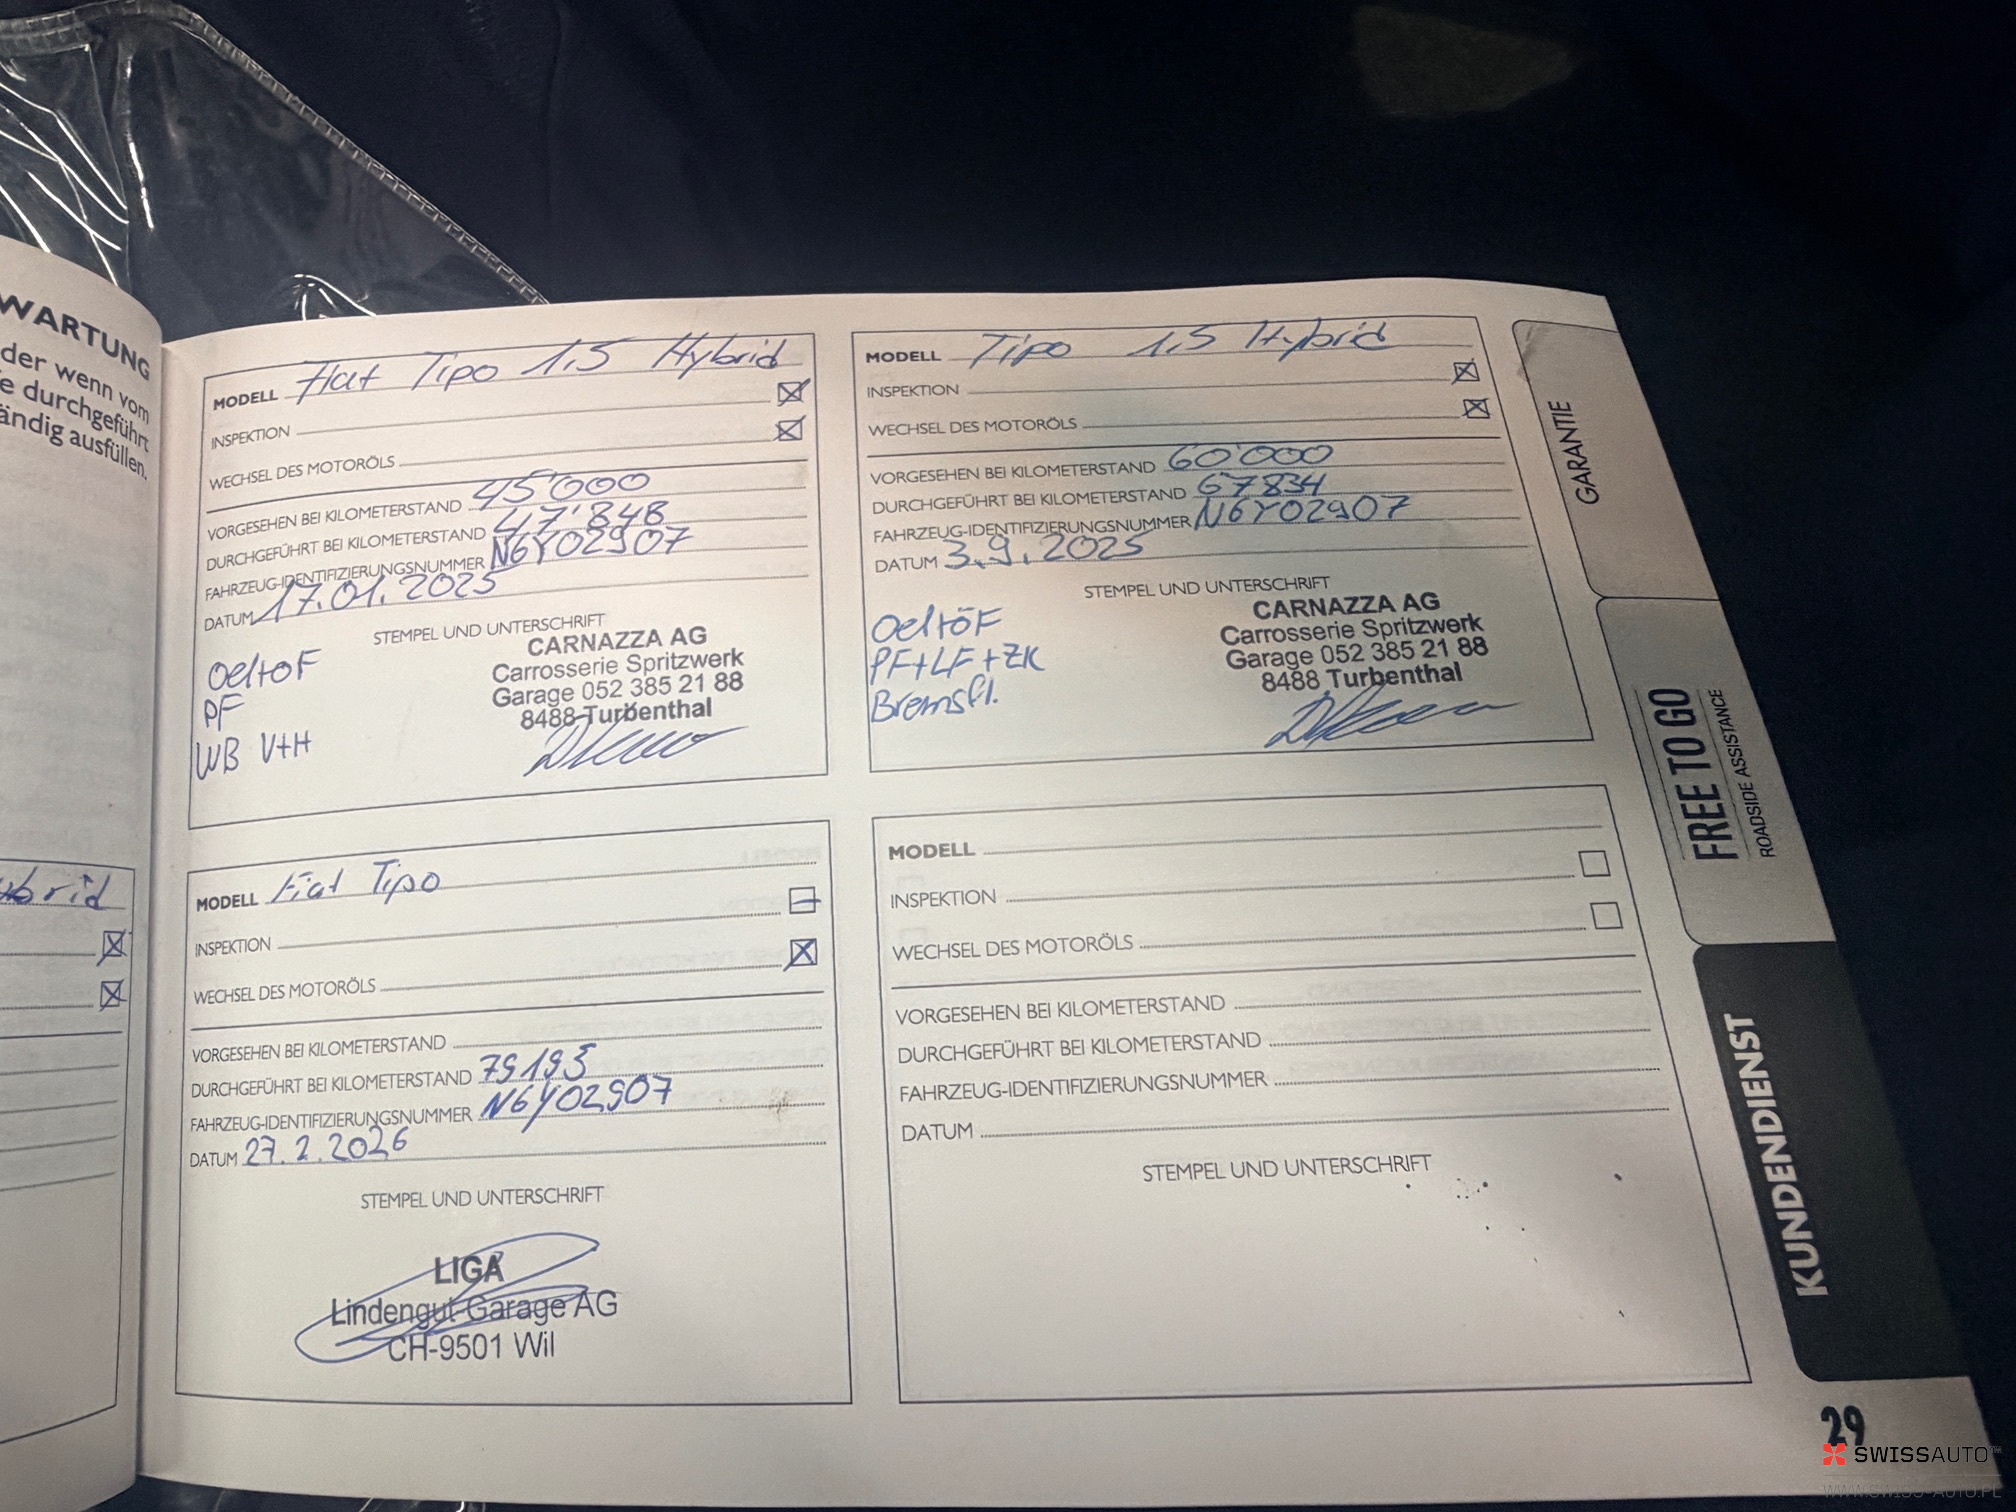 WARTUNG
der wenn vom
e durchgeführt
ändig ausfüllen.
brid
MODELL Fiat Tipo 1.5 Hybrid
INSPEKTION
WECHSEL DES MOTORÖLS
VORGESEHEN BEI KILOMETERSTAND 45'000
DURCHGEFÜHRT BEI KILOMETERSTAND 47'848
FAHRZEUG-IDENTIFIZIERUNGSNUMMER N6Y02907
DATUM 17.01.2025
STEMPEL UND UNTERSCHRIFT
Oel+öF
PF
WB V+H
CARNAZZA AG
Carrosserie Spritzwerk
Garage 052 385 21 88
8488 Turbenthal
MODELL Tipo 1.5 Hybrid
INSPEKTION
WECHSEL DES MOTORÖLS
VORGESEHEN BEI KILOMETERSTAND 60'000
DURCHGEFÜHRT BEI KILOMETERSTAND 67834
FAHRZEUG-IDENTIFIZIERUNGSNUMMER N6Y02907
DATUM 3.9.2025
STEMPEL UND UNTERSCHRIFT
Oel+öF
PF+LF+ZK
Bremsfl.
CARNAZZA AG
Carrosserie Spritzwerk
Garage 052 385 21 88
8488 Turbenthal
MODELL Fiat Tipo
INSPEKTION
WECHSEL DES MOTORÖLS
VORGESEHEN BEI KILOMETERSTAND
DURCHGEFÜHRT BEI KILOMETERSTAND 79195
FAHRZEUG-IDENTIFIZIERUNGSNUMMER N6Y02907
DATUM 27.2.2026
STEMPEL UND UNTERSCHRIFT
LIGA
Lindengut-Garage AG
CH-9501 Wil
MODELL
INSPEKTION
WECHSEL DES MOTORÖLS
VORGESEHEN BEI KILOMETERSTAND
DURCHGEFÜHRT BEI KILOMETERSTAND
FAHRZEUG-IDENTIFIZIERUNGSNUMMER
DATUM
STEMPEL UND UNTERSCHRIFT
GARANTIE
FREE TO GO
ROADSIDE ASSISTANCE
KUNDENDIENST
29
SWISSAUTO™
WWW.SWISS-AUTO.PL